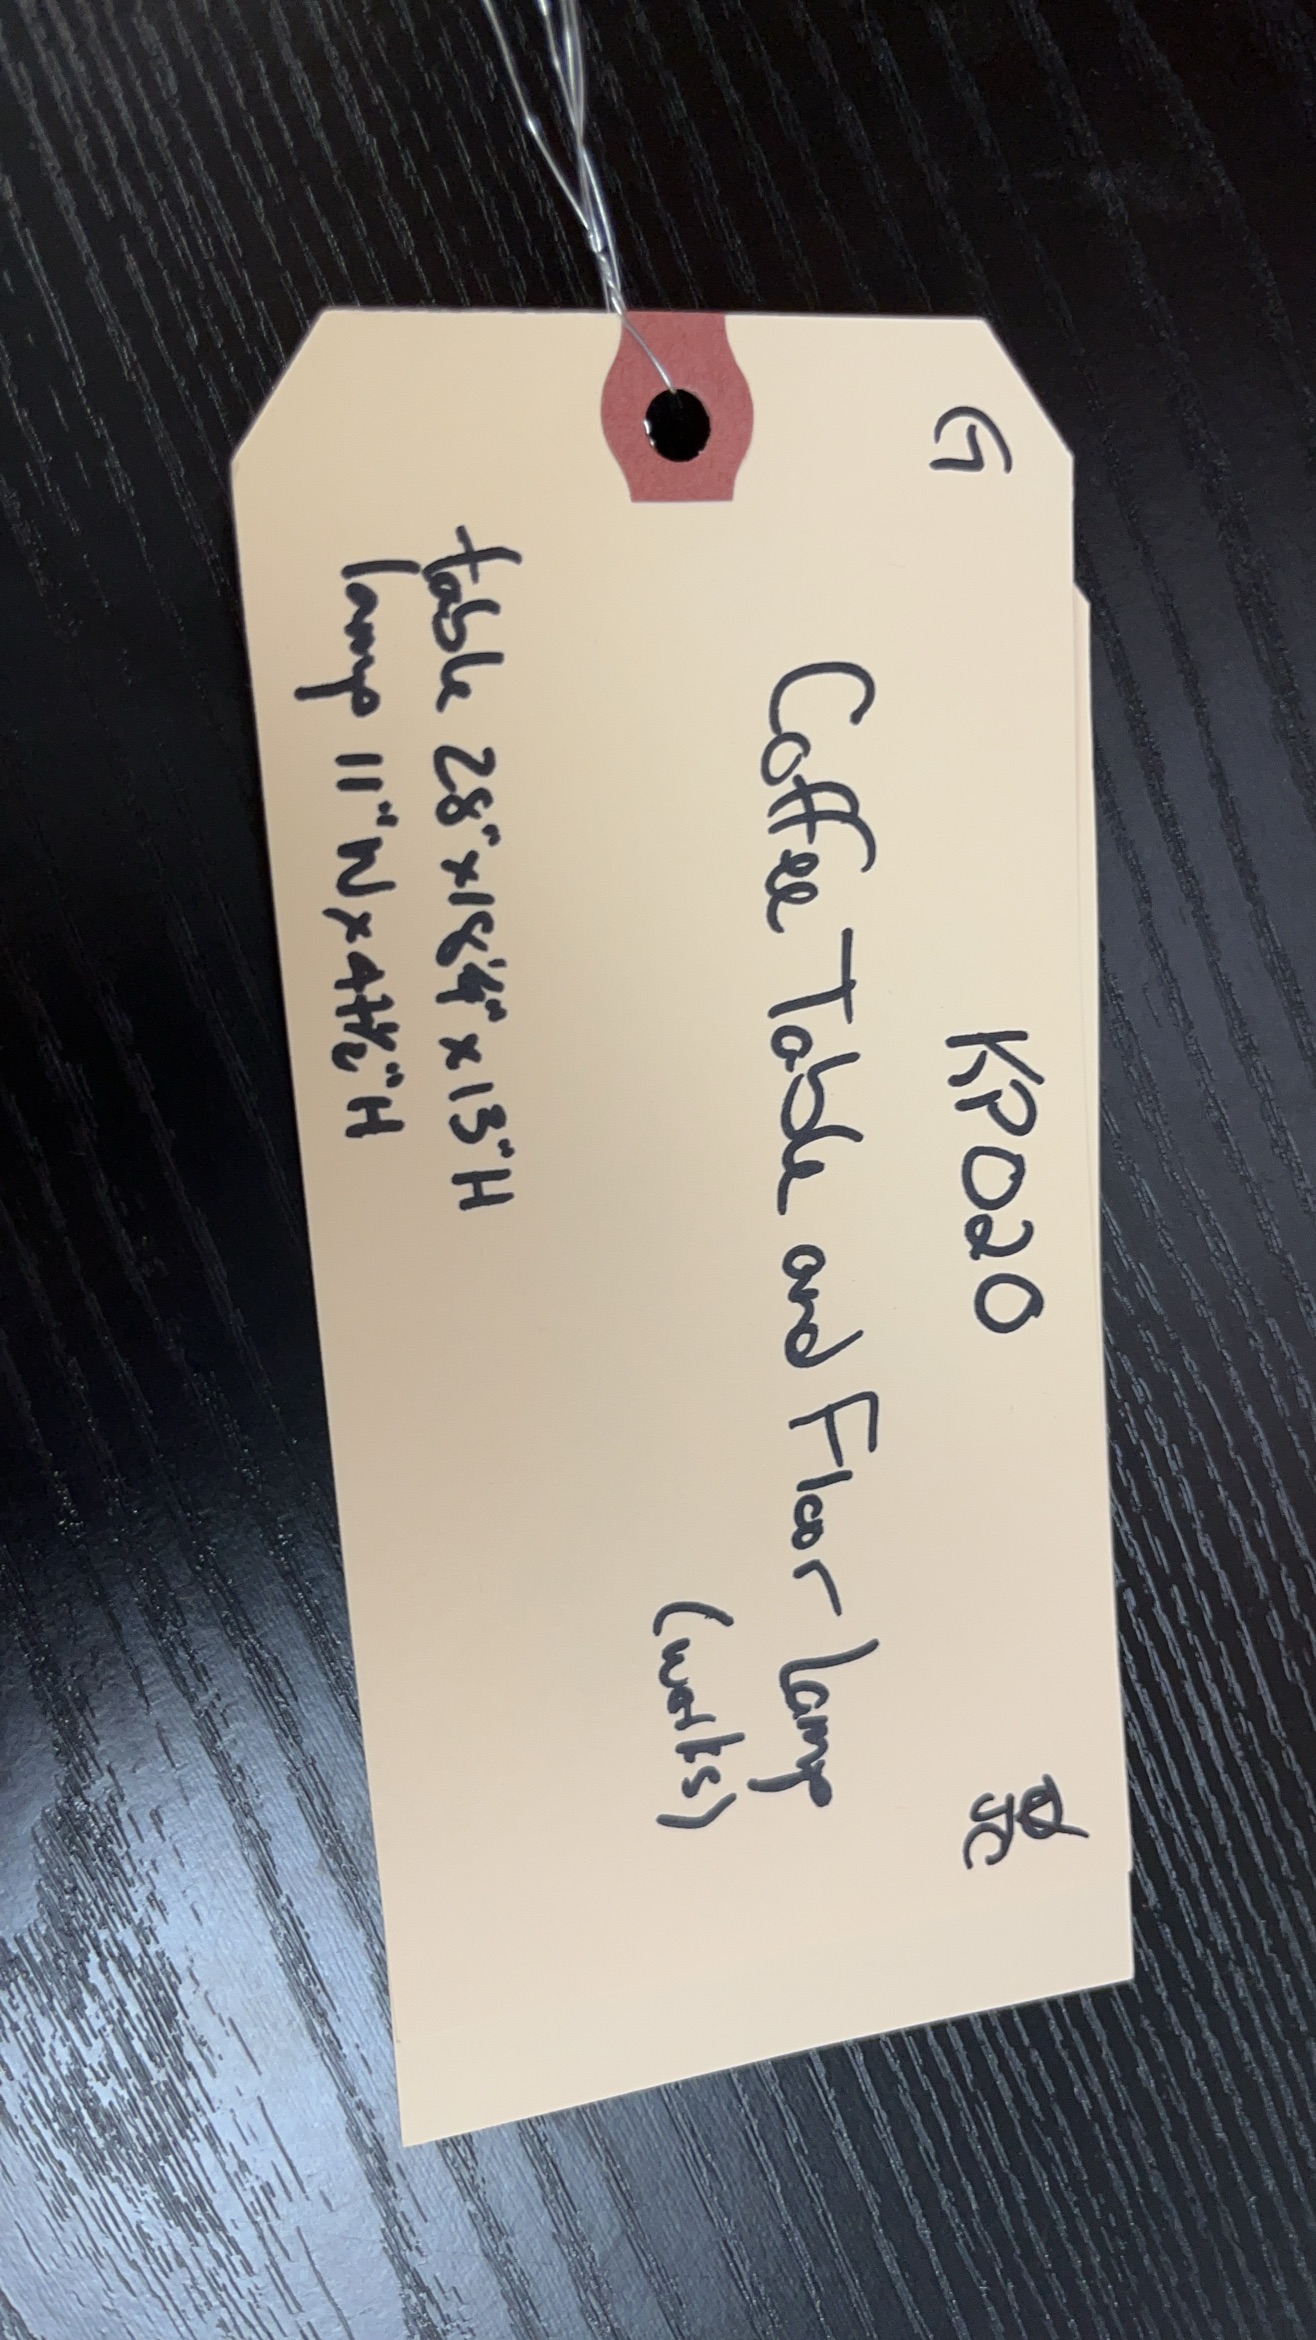 G KPO20 JC
Coffee Table and Floor lamp
(works)
table 28" x 18 1/4" x 13" H
lamp 11" W x 41 1/2" H